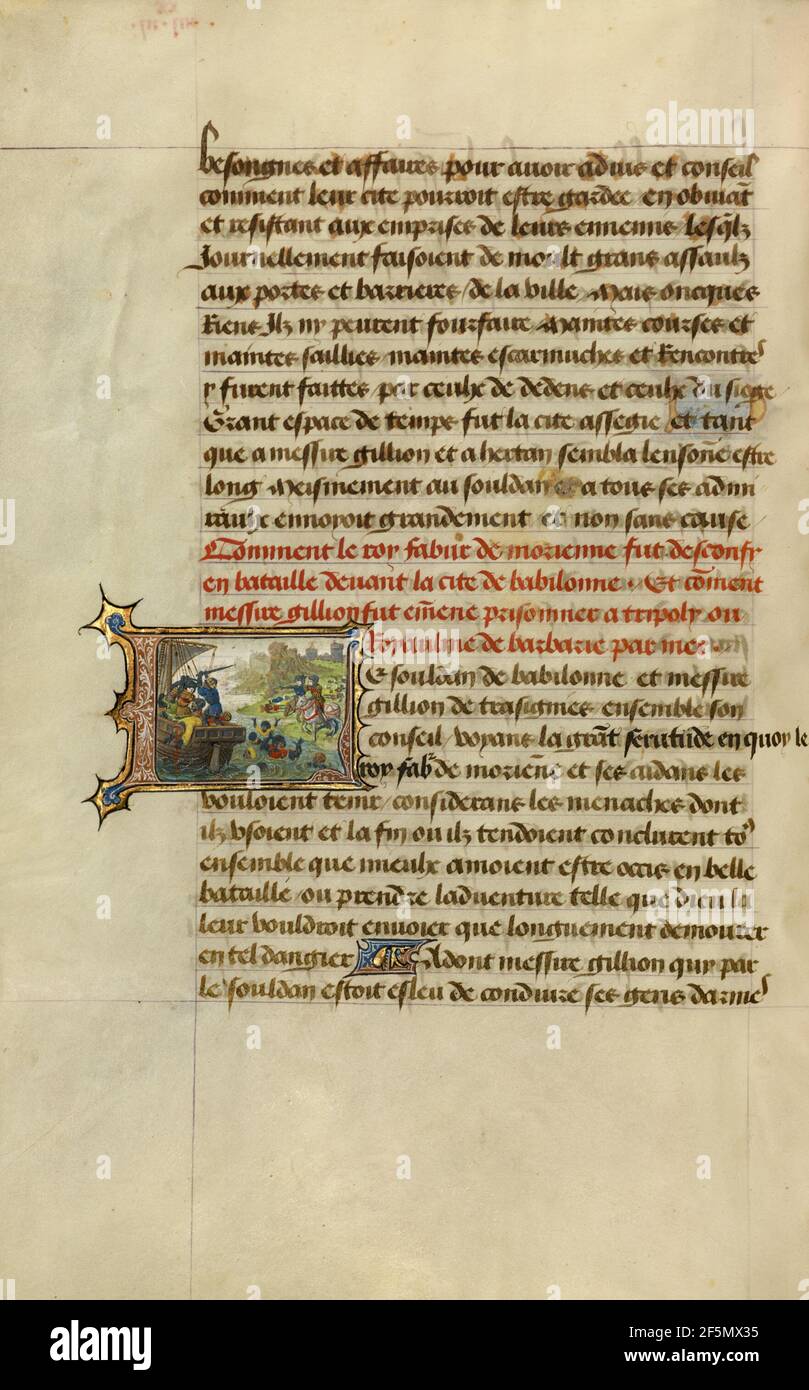 besongnes et affaires pour auoir aduis et conseil
comment leur cite pourroit estre gardee en obuiāt
et resistant aux emprises de leurs ennemis lesqlz
Journellement faisoient de moult grans assaulz
aux portes et barrieres / de la ville Mais oncques
Riens Ilz ny peurent fourfaire Maintes courses et
maintes saillies maintes escarmuches et Rencontres
y furent faittes par ceulx de dedens et ceulx du siege
Grant espace de temps fut la cite assegie et tant
que a messire gillion et a hertan sembla leur sōne estre
long Meismement au souldan et a tous ses admi
raulx ennoyoit grandement et non sans cause
Comment le roy fabur de morienne fut desconfy
en bataille deuant la cite de babilonne . Et cōment
messire gillion fut ēmene prisonnier a tripoly ou
Royaulme de barbarie par mer.
E souldan de babilonne et messire
gillion de trasignies ensemble son
conseil / voyans la grāt seruitude en quoy le
roy fabr de moriēne et ses aidans les
vouloient tenir / considerans les menaches dont
ilz vsoient et la fin ou ilz tendoient conclurent to9
ensemble que mieulx amoient estre occis en belle
bataille / ou prendre laduenture telle que dieu la
leur vouldroit enuoier que longuement demourer
en tel dangier Adont messire gillion quy par
le souldan estoit esleu de conduire ses gens darmes
alamy
Image ID: 2F5MX35
www.alamy.com